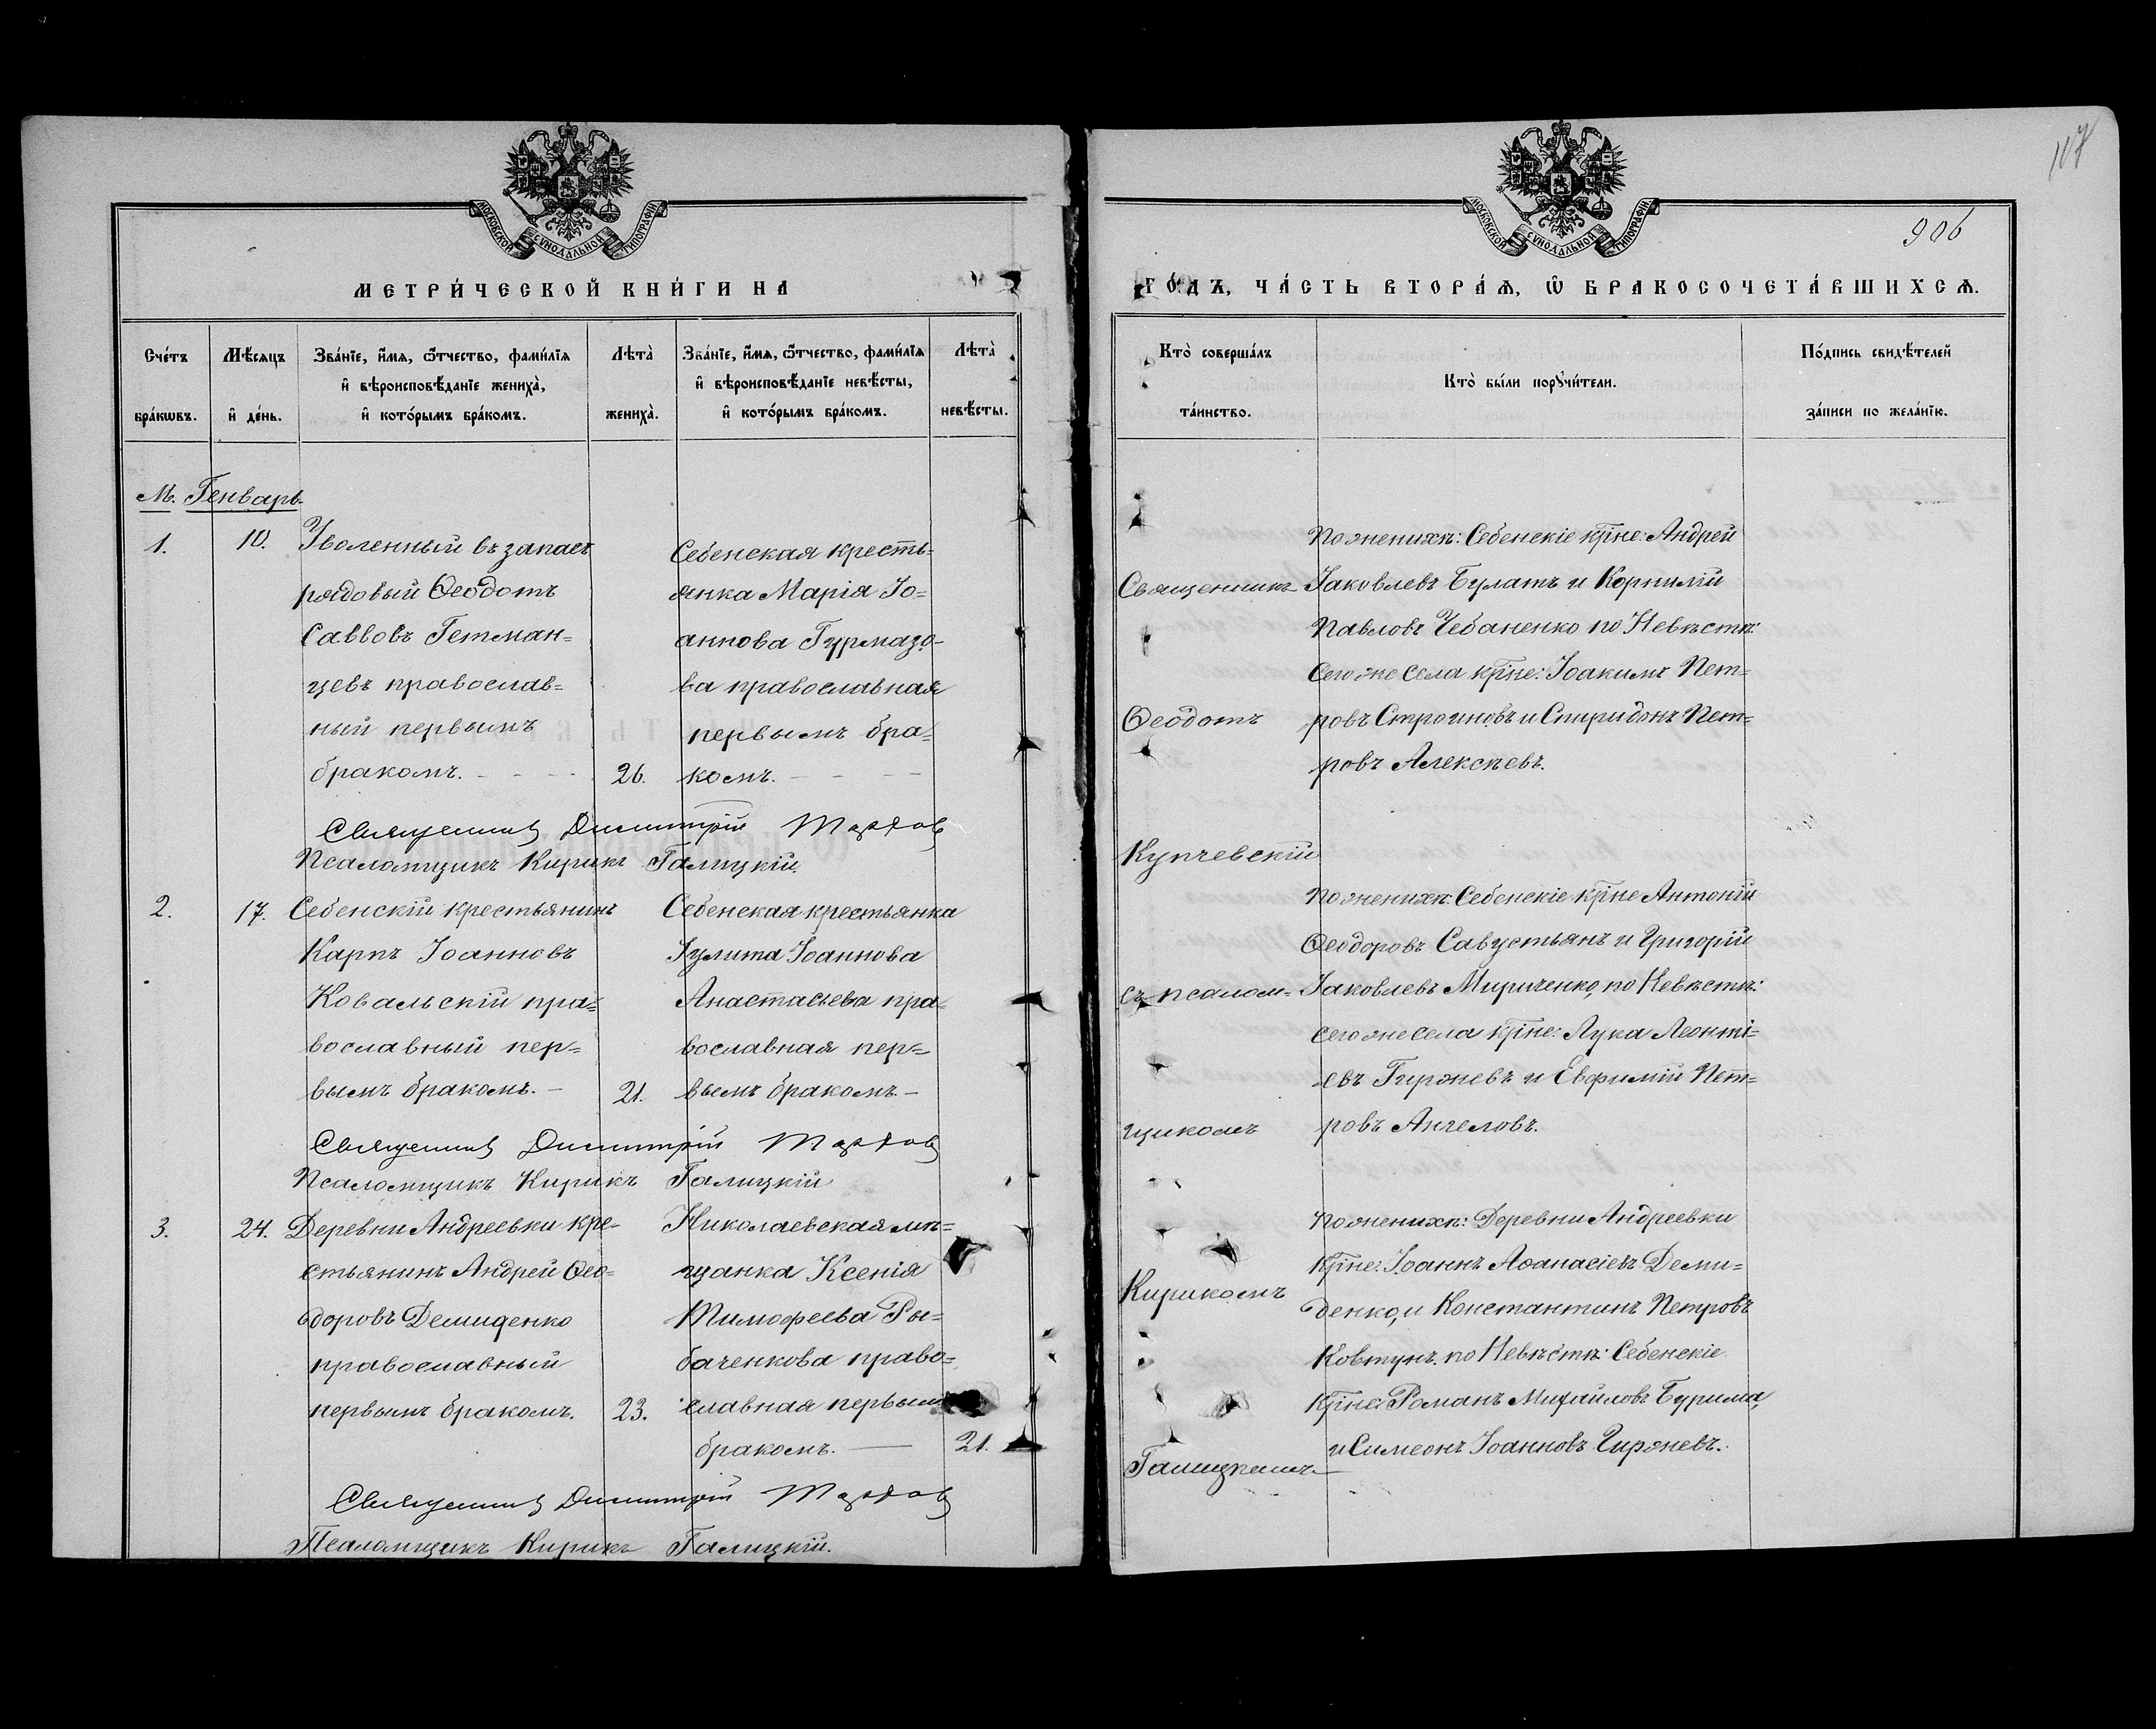 МОСКОВСКОЙ СѴНОДАЛЬНОЙ ТИПОГРАФІИ
МЕТРИ́ЧЕСКОЙ КНИ́ГИ НА
Сче́тъ бра́кѡвъ.
Мѣ́сяцъ и҆ де́нь.
Зва́нїе, и҆́мѧ, ѻ҆́тчество, фами́лїѧ
и҆ вѣроисповѣ́данїе жениха̀,
и҆ кото́рымъ бра́комъ.
Лѣ́та̀
жениха̀.
Зва́нїе, и҆́мѧ, ѻ҆́тчество, фами́лїѧ
и҆ вѣроисповѣ́данїе невѣ́сты,
и҆ кото́рымъ бра́комъ.
Лѣ́та̀
невѣ́сты.
М. Генварь.
1.
10.
Уволенный въ запасъ
рядовый Ѳеодотъ
Саввовъ Гетман=
цевъ православ=
ный первымъ
бракомъ.
26.
Себенская кресть=
янка Марія Іо=
аннова Гурмазо-
ва православная
первымъ бра=
комъ.
Священникъ Димитрій
Псаломщикъ Кирикъ Галицкій.
2.
17.
Себенскій крестьянинъ
Карпъ Іоанновъ
Ковальскій пра=
вославный пер=
вымъ бракомъ. –
21.
Себенская крестьянка
Іулита Іоаннова
Анастасьева пра=
вославная пер=
вымъ бракомъ. –
Священникъ Димитрій
Псаломщикъ Кирикъ Галицкій
3.
24.
Деревни Андреевки кре-
стьянинъ Андрей Ѳео=
доровъ Демиденко
православный
первымъ бракомъ.
23.
Николаевская мѣ=
щанка Ксенія
Тимофеева Ры=
баченкова право=
славная первым
бракомъ.
21.
Священникъ Димитрій
Псаломщикъ Кирикъ Галицкій.
117
906
МОСКОВСКОЙ СѴНОДАЛЬНОЙ ТИПОГРАФІИ
ГО́ДЪ, ЧА́СТЬ ВТОРА́Ѧ, Ѽ БРАКОСОЧЕТА́ВШИХСѦ.
Кто̀ соверша́лъ
та́инство.
Кто̀ бы́ли порꙋчи́тели.
По́дпись свидѣ́телей
за́писи по жела́нїю.
Священникъ
Ѳеодотъ
Купчевскій
съ псалом=
щикомъ
Кирикомъ
Галицкимъ
По женихѣ: Себенскіе кр̃не: Андрей
Іаковлевъ Булатъ и Корнилій
Павловъ Чебаненко по Невѣстѣ:
Сего же села кр̃не: Іоакимъ Пет=
ровъ Строиновъ и Спиридонъ Пет=
ровъ Алексѣевъ.
По женихѣ: Себенскіе кр̃не Антоній
Ѳеодоровъ Савустьянъ и Григорій
Іаковлевъ Мириченко, по Невѣстѣ:
сего же села кр̃не: Лука Леонті=
евъ Гиржевъ и Евфимій Пет=
ровъ Ангеловъ.
По женихѣ: Деревни Андреевки
кр̃не: Іоаннъ Аѳанасіевъ Деми=
денко, и Константинъ Петровъ
Ковтунъ. по Невѣстѣ: Себенскіе
кр̃не: Романъ Михайловъ Бурима,
и Симеонъ Іоанновъ Гиржевъ.